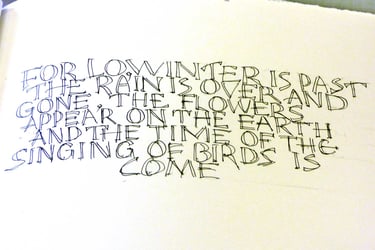 FOR LO WINTER IS PAST
THE RAIN IS OVER AND
GONE, THE FLOWERS
APPEAR ON THE EARTH
AND THE TIME OF THE
SINGING OF BIRDS IS
COME